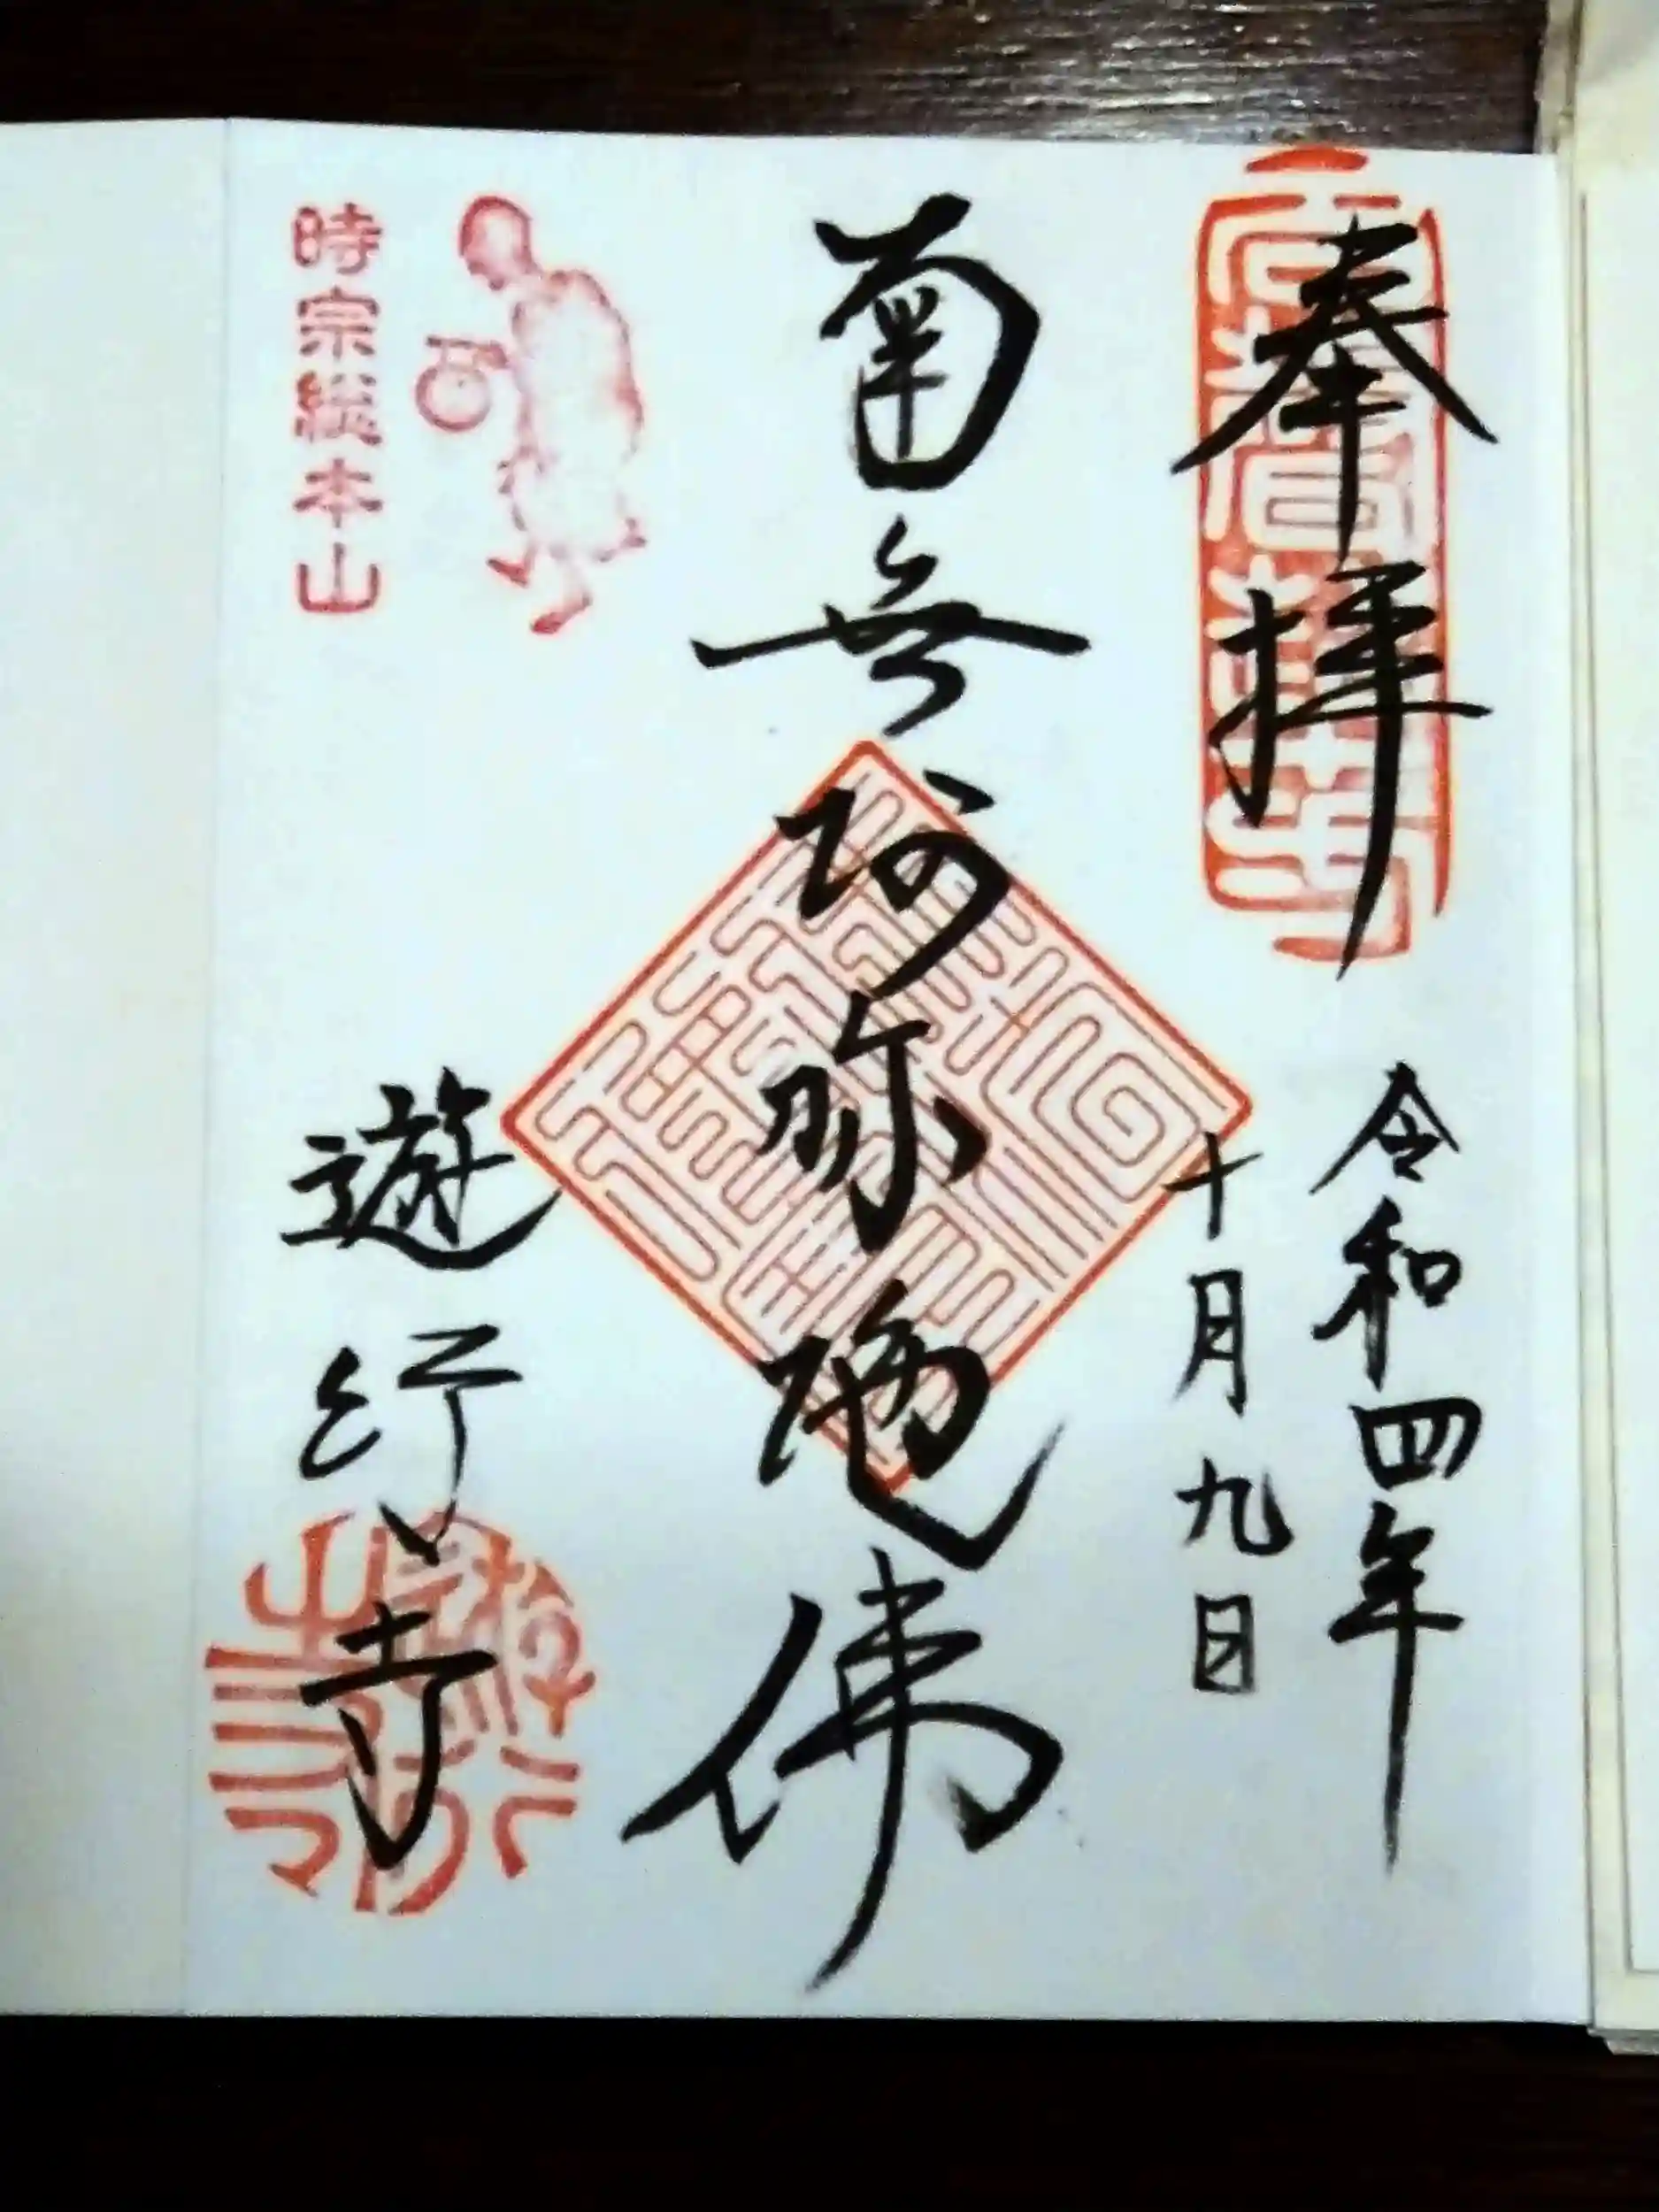 奉拝
令和四年
十月九日
南無阿弥陀佛
時宗総本山
遊行寺